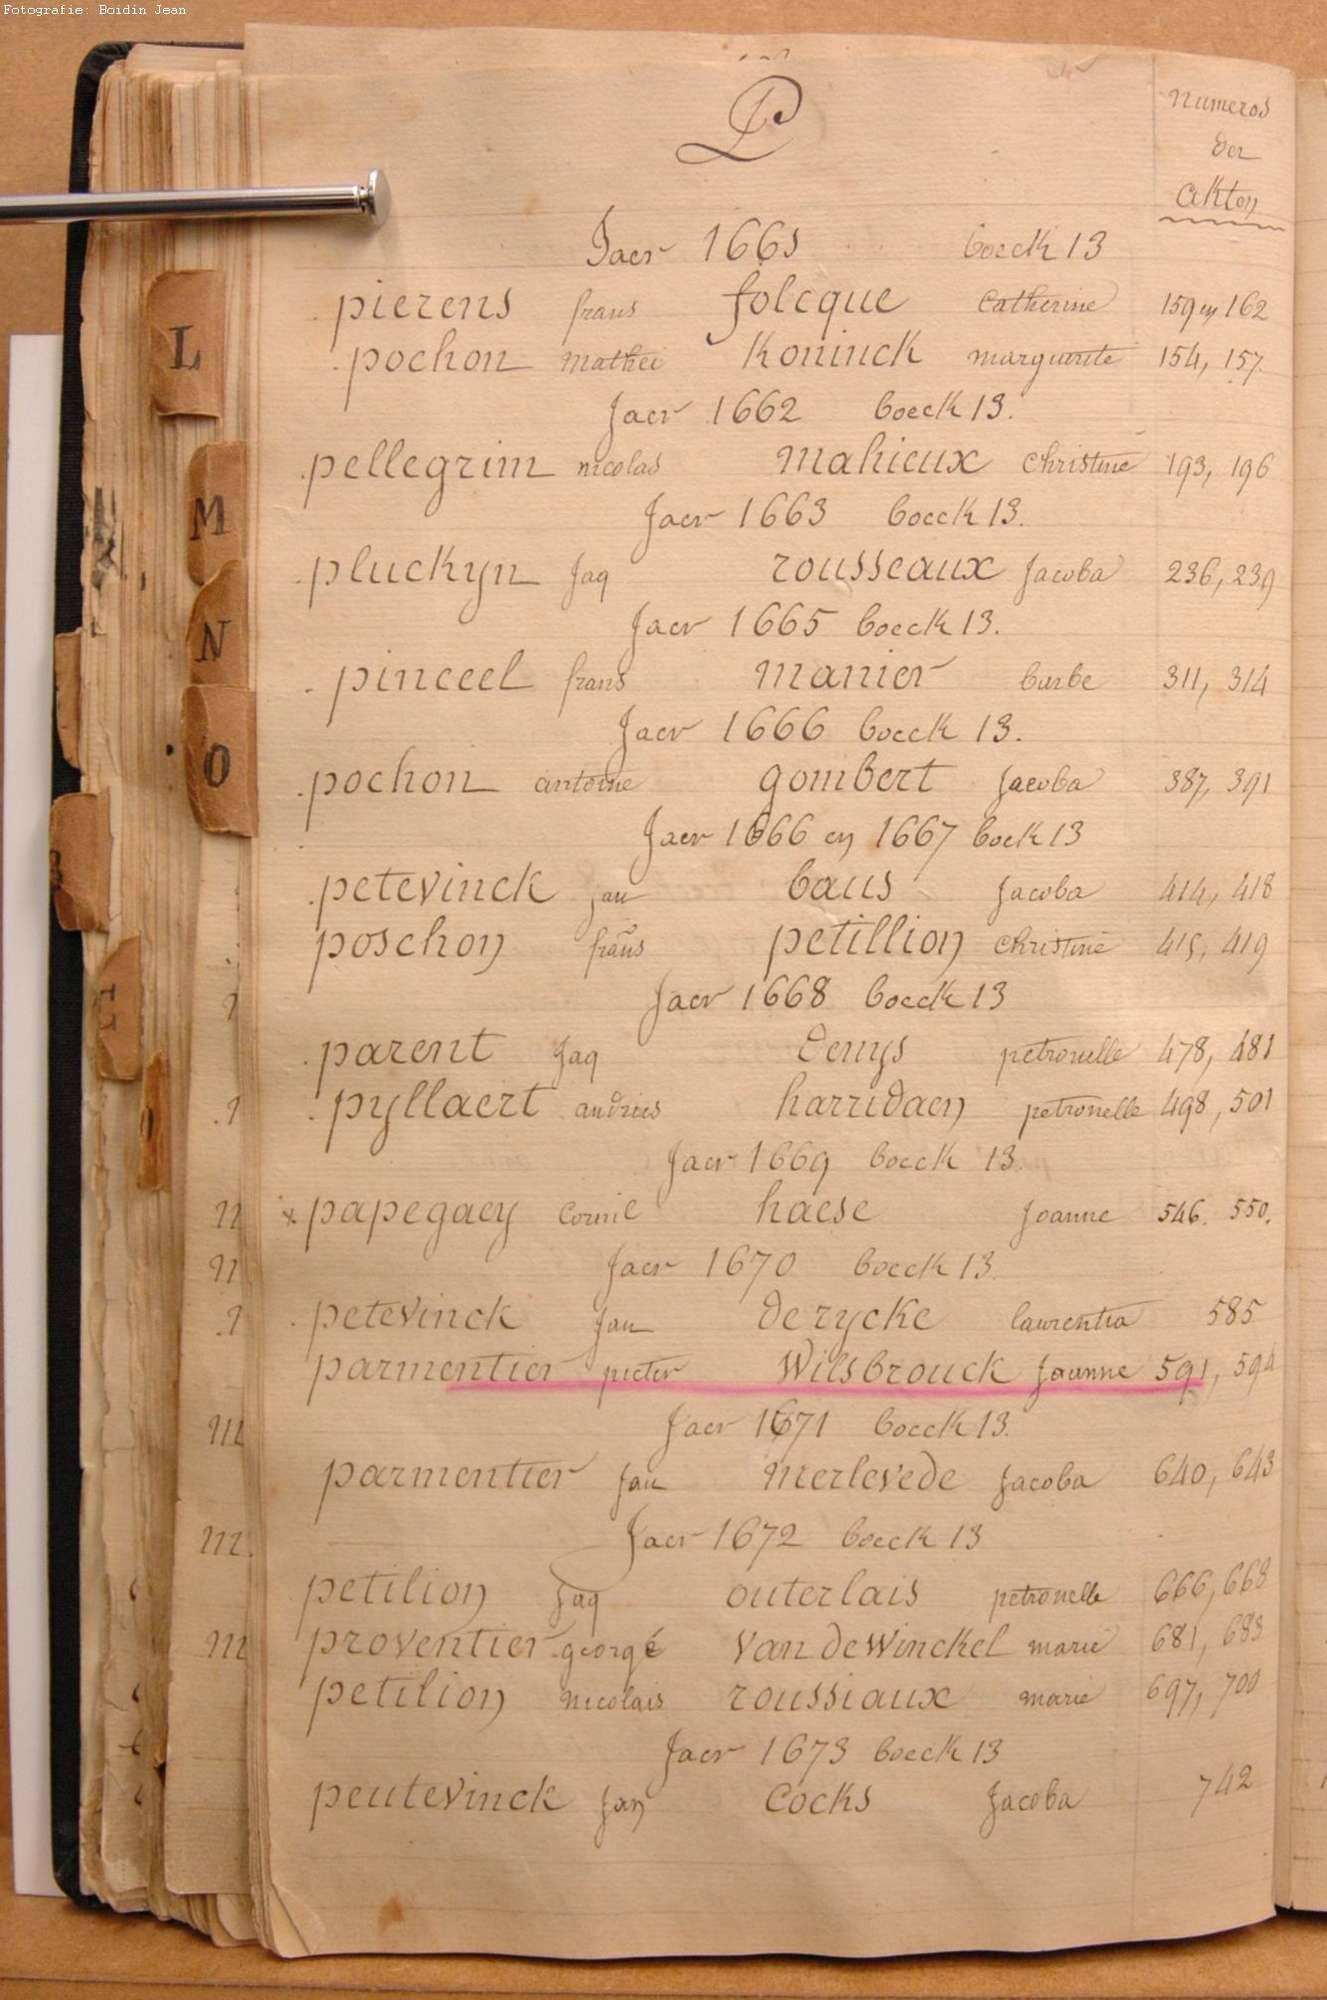 Fotografie: Boidin Jean
P
Numeros
der
akten
Jaer 1661 boeck 13
pierens frans folcque Catherine 159 en 162
pochon Mathei Koninck marguerite 154, 157
Jaer 1662 boeck 13.
pellegrim nicolas mahieux Christine 193, 196
Jaer 1663 boeck 13.
pluckyn Jaq rousseaux Jacoba 236, 239
Jaer 1665 boeck 13.
pinceel frans manier barbe 311, 314
Jaer 1666 boeck 13.
pochon antoine gombert Jacoba 387, 391
Jaer 1666 en 1667 boek 13
petevinck jan baus Jacoba 414, 418
poschon frans petillion christine 415, 419
Jaer 1668 boeck 13
parent Jaq denys petronelle 478, 481
pyllaert andries harridaen petronelle 498, 501
Jaer 1669 boeck 13.
x papegaey Cornil haese Joanne 546. 550.
Jaer 1670 boeck 13.
petevinck Jan de rycke laurentia 585
parmentier pieter Wilsbrouck Joanne 591, 594
Jaer 1671 boeck 13.
parmentier Jan Merlevede Jacoba 640, 643
Jaer 1672 boeck 13
petilion Jaq outerlais petronelle 666, 668
proventier george Van de Winckel marie 681, 683
petilion Nicolais roussiaux marie 697, 700
Jaer 1673 boeck 13
peutevinck Jan Cocks Jacoba 742
L
M
N
O